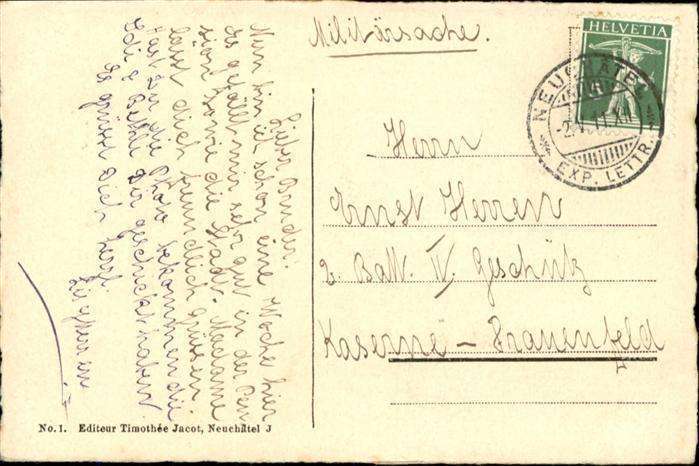 Militärsache.
HELVETIA
NEUCHÂTEL
EXP. LETTR.
Herrn
Ernst Herren
2. Batt. IV. Geschütz
Kaserne - Frauenfeld
Lieber Bruder.
Nun bin ich schon eine Woche hier
Es gefällt mir sehr gut in der Pen
sion sowie die Stadt. Madame
lässt dich freundlich grüssen.
Hast Du die Photo bekommen die
Edi & Bethli Dir geschickt haben.
Es grüsst Dich herzl.
No. 1. Editeur Timothée Jacot, Neuchâtel J